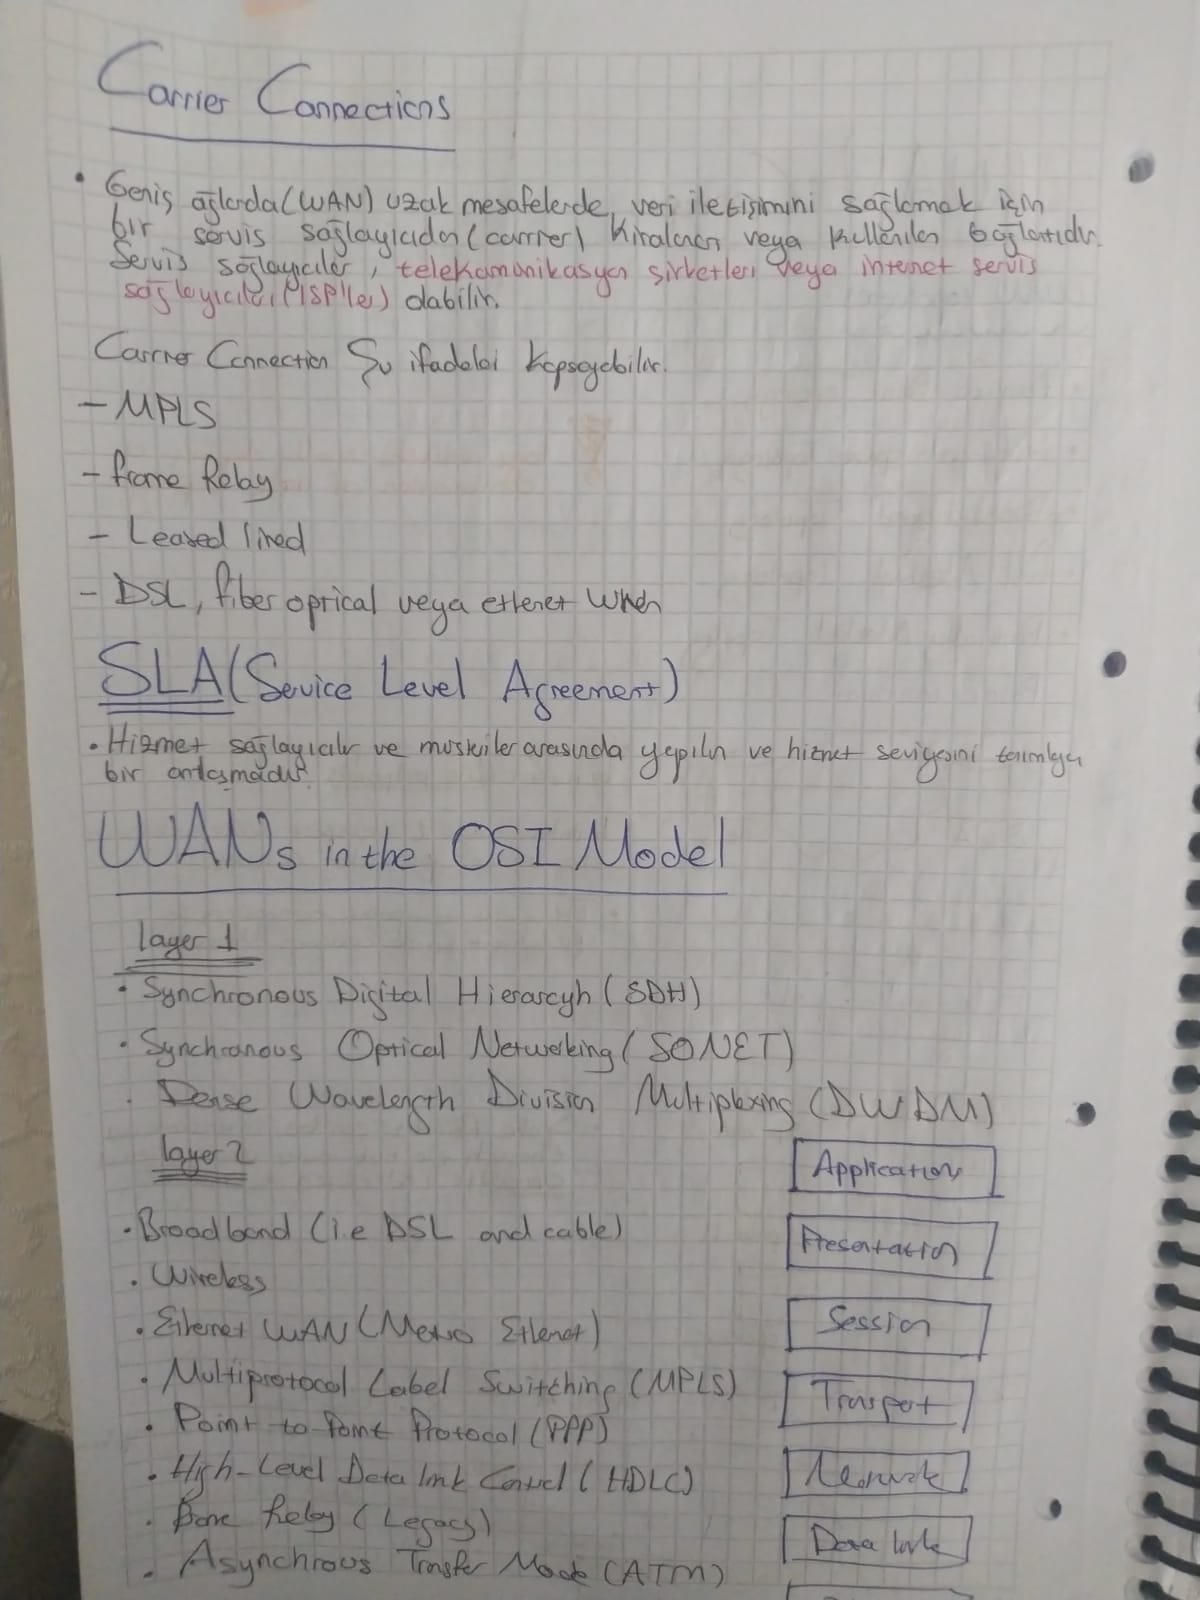 Carrier Connections
• Geniş ağlarda (WAN) uzak mesafelerde, veri iletişimini sağlamak için
bir servis sağlayıcıdan (carrier) kiralanan veya kullanılan bağlantıdır.
Servis sağlayıcılar, telekomünikasyon şirketleri veya internet servis
sağlayıcıları (ISP'ler) olabilir.
Carrier Connection Şu ifadeleri kapsayabilir.
- MPLS
- frame Relay
- Leased lined
- DSL, fiber optical veya ethernet
SLA (Service Level Agreement)
• Hizmet sağlayıcılar ve müşteriler arasında yapılan ve hizmet seviyesini tanımlayan
bir antlaşmadır.
WANs in the OSI Model
layer 1
• Synchronous Digital Hierarcyh (SDH)
• Synchronous Optical Networking (SONET)
. Dense Wavelength Division Multiplexing (DWDM)
layer 2
Application
• Broadband (i.e DSL and cable)
Presentation
. Wireless
Session
. Ethernet WAN (Metro Ethernet)
. Multiprotocol Label Switching (MPLS)
Transport
. Point-to-Point Protocol (PPP)
. High-Level Data link Control (HDLC)
Network
. Frame Relay (Legacy)
Data link
. Asynchrous Transfer Mode (ATM)